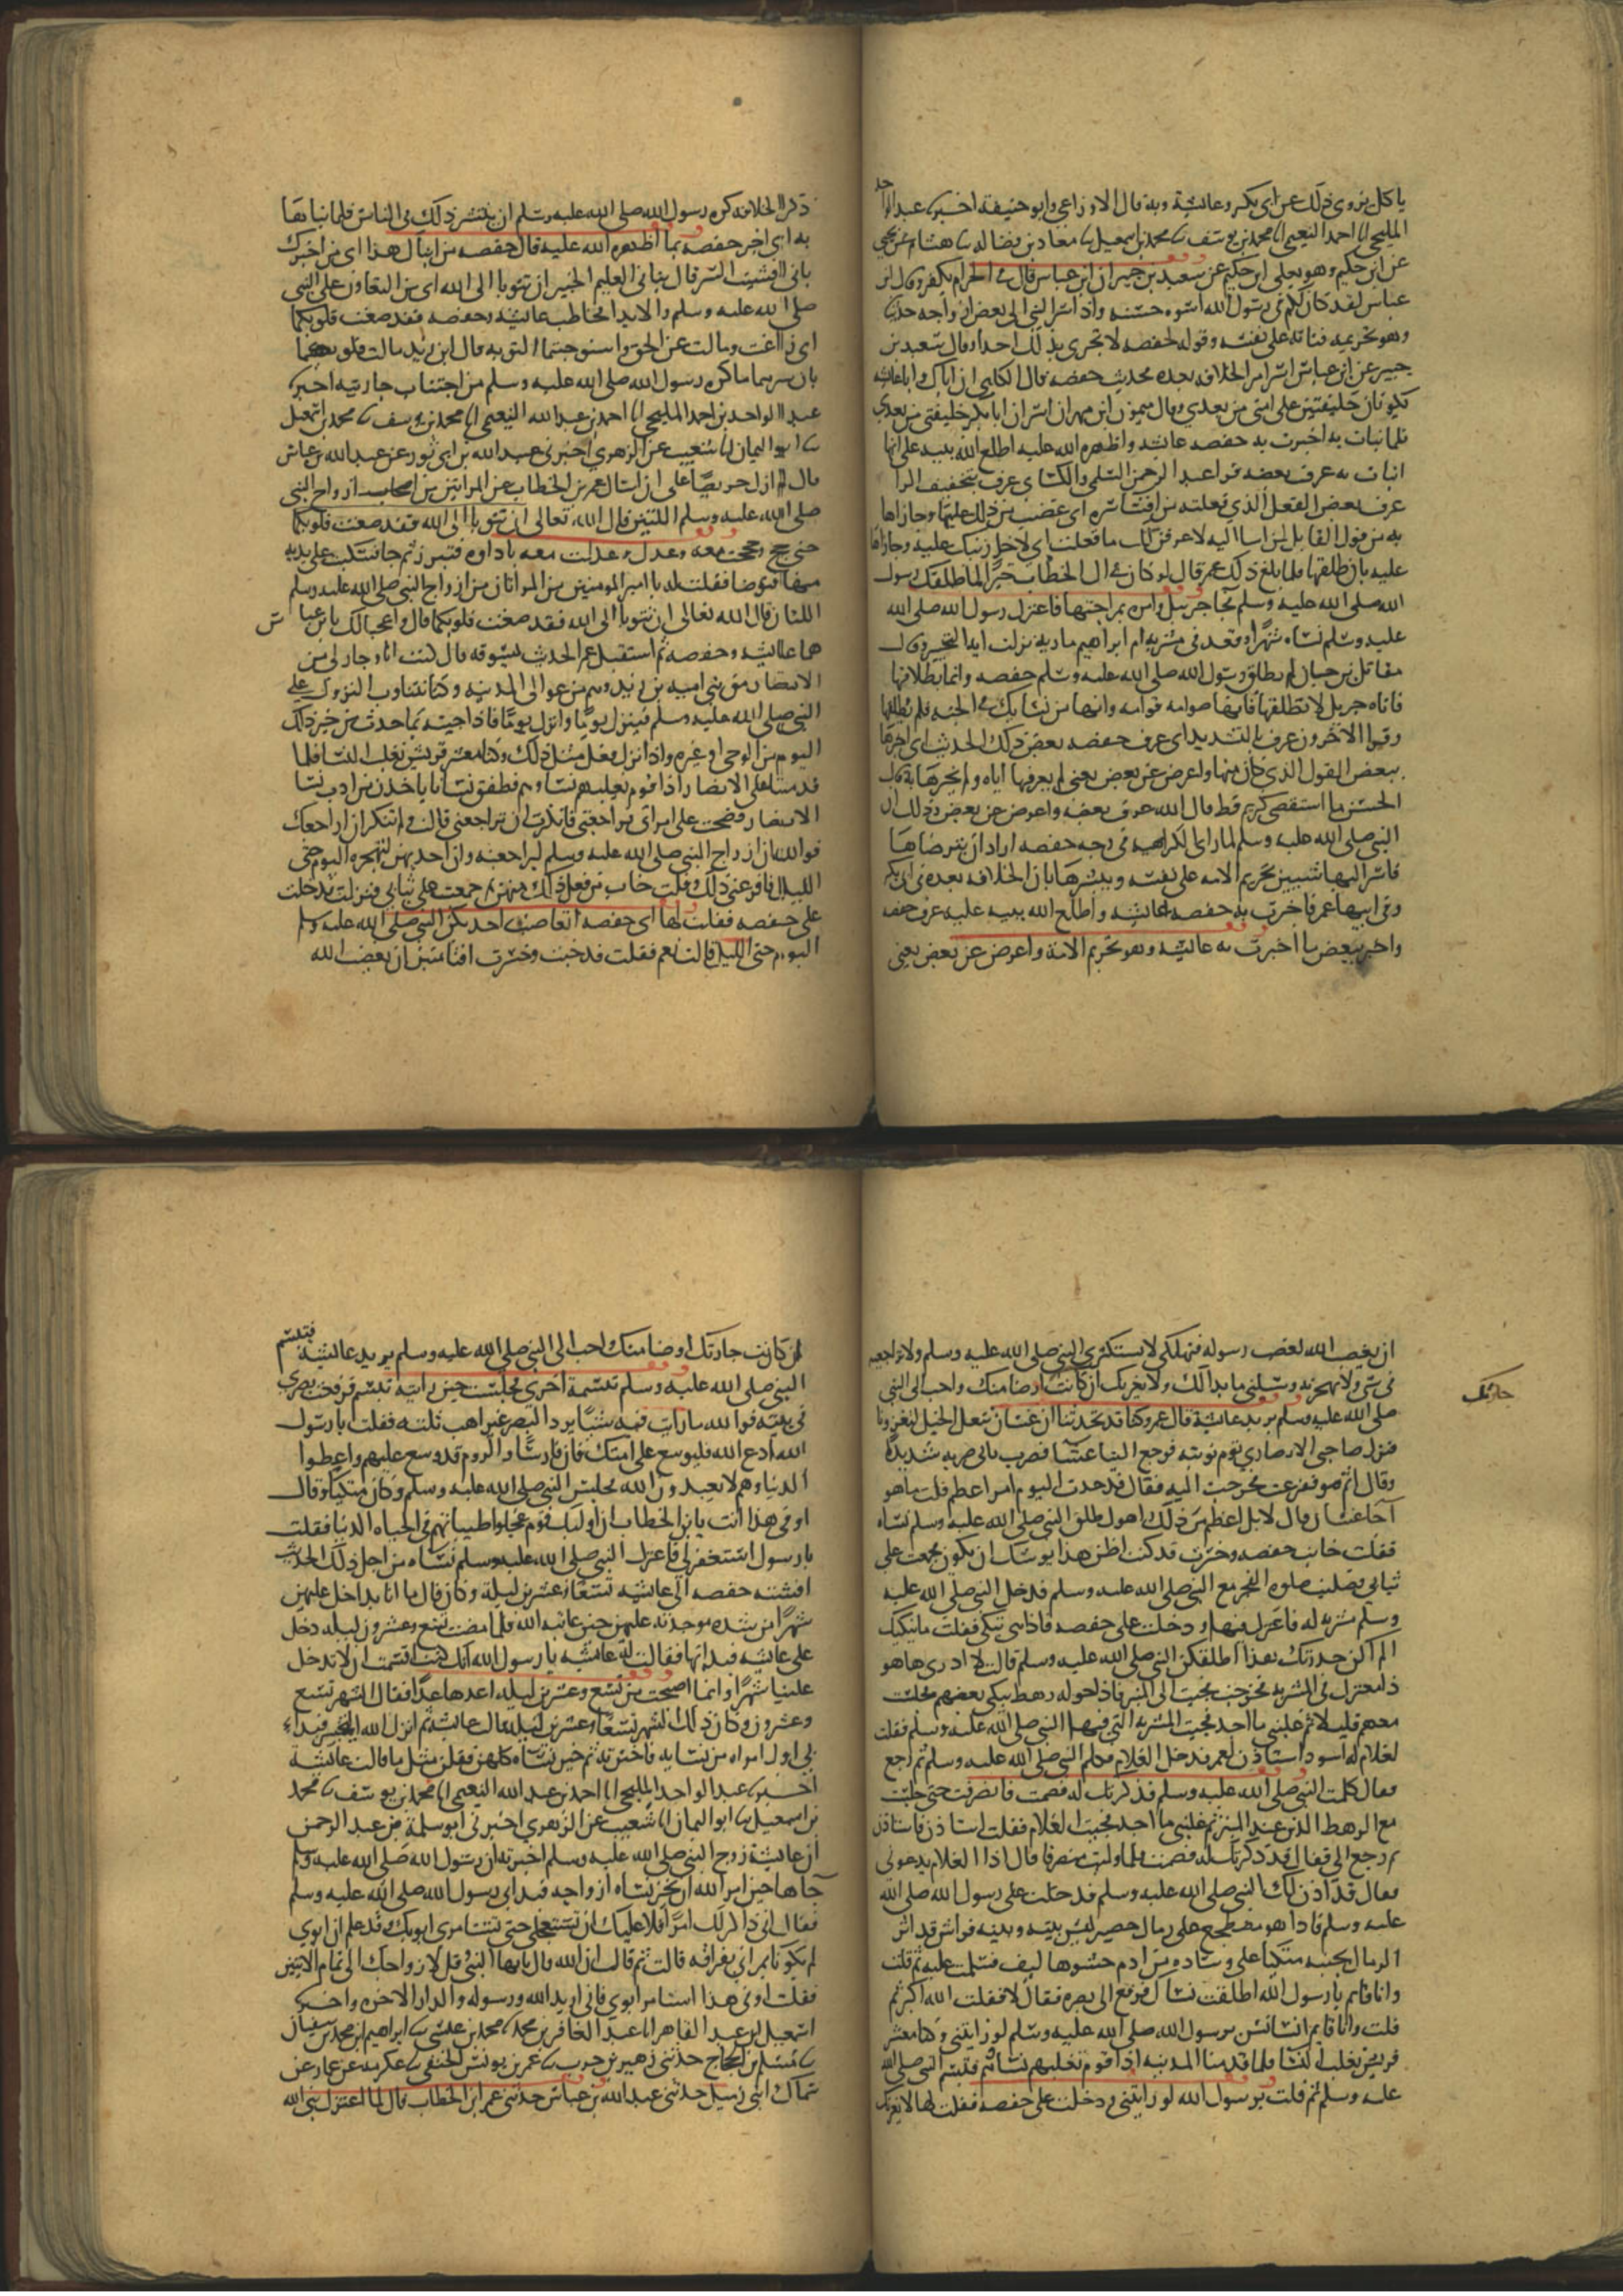 ياكل يروى ذلك عن ابى بكر وعائشة وبه قال الاوزاعى وابو حنيفة اخبرنا عبد الواحد
المليحى انا احمد النعيمى انا محمد بن يوسف نا محمد بن اسمعيل نا معاذ بن فضاله نا هشام عن يحيى
عن ابن حكيم وهو يعلى ابن حكيم عن سعيد بن جبير ان ابن عباس قال فى الحرام يكفر وقال ابن
عباس لقد كان لكم فى رسول الله اسوه حسنه واذ اسر النبى الى بعض ازواجه حديثا
وهو تحريمه فتاته على نفسه وقوله لحفصه لا تخبرى بذلك احدا وقال سعيد بن
جبير عن ابن عباس اسر امر الخلافه بعده فحديث حفصه قال الكلبى ان اباك وابا عائشه
يكونان خليفتين على امتى من بعدى وقال ميمون ابن مهران اسر ان ابا بكر خليفتى من بعدى
فلما نبات به اخبرت به حفصه عائشه واظهره الله عليه اطلع الله نبيه على انها
انبات به عرف بعضه قرا عبد الرحمن السلمى والكسائى عرف بتخفيف الرا
عرف بعض الفعل الذى فعلته من افشا سره اى غضب من ذلك عليها وجازاها
به من قول القايل لمن اسا اليه لاعرفن لك ما فعلت اى لاجازينك عليه وجازاها
عليه بان طلقها فلما بلغ ذلك عمر قال لو كان فى ال الخطاب خيرا لما طلقك رسول
الله صلى الله عليه وسلم فجا جبريل وامره بمراجعتها فاعتزل رسول الله صلى الله
عليه وسلم نساه شهرا وقعد فى مشربه ام ابراهيم ماريه نزلت ايه التخيير وقال
مقاتل بن حيان لم يطلق رسول الله صلى الله عليه وسلم حفصه وانما هم بطلاقها
فاتاه جبريل لا تطلقها فانها صوامه قوامه وانها من نسايك فى الجنه فلم يطلقها
وقرا الاخرون عرف بالتشديد اى عرف حفصه بعض ذلك الحديث اى اخبرها
ببعض القول الذى كان منها واعرض عن بعض يعنى لم يعرفها اياه ولم يخبرها به قال
الحسن ما استقصى كريم قط قال الله عرف بعضه واعرض عن بعض وذلك ان
النبى صلى الله عليه وسلم لما راى الكراهيه فى وجه حفصه اراد ان يترضاها
فاسر اليها شيين تحريم الامه على نفسه وبشرها بان الخلافه بعده فى ابى بكر
وفى ابيها عمر فاخبرت به حفصه لعائشه واطلع الله نبيه عليه عرف حفصه
واخبر ببعض ما اخبرت به عائشه وهو تحريم الامة واعرض عن بعض يعنى
ذكر الخلافه كره رسول الله صلى الله عليه وسلم ان ينتشر ذلك فى الناس فلما نباها
به اى اخبر حفصه بما اظهره الله عليه قال حفصه من انباك هذا اى من اخبرك
بانى افشيت السر قال نبانى العليم الخبير ان تتوبا الى الله اى من التعاون على النبى
صلى الله عليه وسلم والايذا يخاطب عائشه وحفصه فقد صغت قلوبكما
اى زاغت ومالت عن الحق واستوجبتما التوبه قال ابن زيد مالت قلوبهما
بان سرهما ما كره رسول الله صلى الله عليه وسلم من اجتناب جاريته اخبرنا
عبد الواحد بن احمد المليحى انا احمد بن عبد الله النعيمى انا محمد بن يوسف نا محمد بن اسمعيل
نا ابو اليمان انا شعيب عن الزهرى اخبرنى عبيد الله بن ابى ثور عن عبد الله بن عباس
قال لم ازل حريصا على ان اسال عمر بن الخطاب عن المراتين من ازواج النبى
صلى الله عليه وسلم اللتين قال الله تعالى ان تتوبا الى الله فقد صغت قلوبكما
حتى حج وحججت معه وعدل وعدلت معه باداوه فتبرز ثم جا فسكبت على يديه
منها فتوضا فقلت له يا امير المومنين من المراتان من ازواج النبى صلى الله عليه وسلم
اللتان قال الله تعالى ان تتوبا الى الله فقد صغت قلوبكما قال واعجبا لك يا بن عباس
هما عائشه وحفصه ثم استقبل عمر الحديث يسوقه قال كنت انا وجار لى من
الانصار من بنى اميه بن زيد وهم من عوالى المدينه وكنا نتناوب النزول على
النبى صلى الله عليه وسلم فينزل يوما وانزل يوما فاذا جيته بما حدث من خبر ذلك
اليوم من الوحى او غيره واذا نزل فعل مثل ذلك وكنا معشر قريش نغلب النسا فلما
قدمنا على الانصار اذا قوم تغلبهم نساوهم فطفق نسانا ياخذن من ادب نسا
الانصار فصحت على امراتى فراجعتنى فانكرت ان تراجعنى قالت ولم تنكر ان اراجعك
فوالله ان ازواج النبى صلى الله عليه وسلم ليراجعنه وان احديهن لتهجره اليوم حتى
الليل فافزعنى ذلك وقلت خاب من فعل ذلك منهن ثم جمعت على ثيابى فنزلت فدخلت
على حفصه فقلت لها اى حفصه اتغاضب احديكن النبى صلى الله عليه وسلم
اليوم حتى الليل قالت نعم فقلت قد خبت وخسرت افتامنين ان يغضب الله
ان يغضب الله لغضب رسوله فتهلكى لا تستكثرى النبى صلى الله عليه وسلم ولا تراجعيه
فى شى ولا تهجريه وسلينى ما بدا لك ولا يغرنك ان كانت اوضا منك واحب الى النبى
جارتك
صلى الله عليه وسلم يريد عائشة قال عمر وكنا قد تحدثنا ان غسان تنعل الخيل لتغزونا
فنزل صاحبى الانصارى يوم نوبته فرجع الينا عشا فضرب بابى ضربه شديدا
وقال اثم هو ففزعت فخرجت اليه فقال قد حدث اليوم امر اعظم قلت ما هو
اجا غسان قال لا بل اعظم من ذلك واهول طلق النبى صلى الله عليه وسلم نساه
فقلت خاب حفصه وخسرت قد كنت اظن هذا يوشك ان يكون فجمعت على
ثيابى فصليت صلوه الفجر مع النبى صلى الله عليه وسلم فدخل النبى صلى الله عليه
وسلم مشربه له فاعتزل فيها ودخلت على حفصه فاذا هى تبكى فقلت ما يبكيك
الم اكن حذرتك هذا اطلقكن النبى صلى الله عليه وسلم قالت لا ادرى ها هو
ذا معتزل فى المشربه فخرجت فجيت الى المنبر فاذا حوله رهط يبكى بعضهم فجلست
معهم قليلا ثم غلبنى ما اجد فجيت المشربه التى فيها النبى صلى الله عليه وسلم فقلت
لغلام له اسود استاذن لعمر فدخل الغلام فكلم النبى صلى الله عليه وسلم ثم رجع
فقال كلمت النبى صلى الله عليه وسلم فذكرتك له فصمت فانصرفت حتى جلست
مع الرهط الذين عند المنبر ثم غلبنى ما اجد فجيت الغلام فقلت استاذن فاستاذن
ثم رجع الى فقال قد ذكرتك له فصمت فلما وليت منصرفا قال اذا الغلام يدعونى
فقال قد اذن لك النبى صلى الله عليه وسلم فدخلت على رسول الله صلى الله
عليه وسلم فاذا هو مضطجع على رمال حصير ليس بينه وبينه فراش قد اثر
الرمال بجنبه متكيا على وساده من ادم حشوها ليف فسلمت عليه ثم قلت
وانا قايم يا رسول الله اطلقت نساك فرفع الى بصره فقال لا فقلت الله اكبر ثم
قلت وانا قايم استانس يرسول الله صلى الله عليه وسلم لو رايتنى وكنا معشر
قريش نغلب النسا فلما قدمنا المدينه اذا قوم تغلبهم نساوهم فتبسم النبى صلى الله
عليه وسلم ثم قلت يرسول الله لو رايتنى ودخلت على حفصه فقلت لها لا يغرنك
ان كانت جارتك اوضا منك واحب الى النبى صلى الله عليه وسلم يريد عائشة فتبسم
النبى صلى الله عليه وسلم تبسمة اخرى فجلست حين رايته تبسم فرفعت بصرى
فى بيته فوالله ما رايت فيه شيئا يرد البصر غير اهب ثلثه فقلت يا رسول
الله ادع الله فليوسع على امتك فان فارسا والروم قد وسع عليهم واعطوا
الدنيا وهم لا يعبدون الله فجلس النبى صلى الله عليه وسلم وكان متكيا وقال
اوفى هذا انت يا بن الخطاب ان اوليك قوم عجلوا طيباتهم فى الحياه الدنيا فقلت
يا رسول استغفر لى فاعتزل النبى صلى الله عليه وسلم نساه من اجل ذلك الحديث
افشته حفصه الى عائشه تسعا وعشرين ليلة وكان قال ما انا بداخل عليهن
شهرا من شده موجدته عليهن حين عاتبه الله فلما مضت تسع وعشرون ليله دخل
على عائشه فبدا بها فقالت له عائشه يا رسول الله انك كنت اقسمت ان لا تدخل
علينا شهرا وانما اصبحت من تسع وعشرين ليله اعدها عدا فقال الشهر تسع
وعشرون وكان ذلك الشهر تسعا وعشرين ليله قالت عائشه ثم انزل الله التخيير فبدا
بى اول امراه من نسايه فاخترته ثم خير نساه كلهن فقلن مثل ما قالت عائشة
اخبرنا عبد الواحد المليحى انا احمد بن عبد الله النعيمى انا محمد بن يوسف نا محمد
بن اسمعيل نا ابو اليمان انا شعيب عن الزهرى اخبرنى ابو سلمة بن عبد الرحمن
ان عائشة زوج النبى صلى الله عليه وسلم اخبرته ان رسول الله صلى الله عليه وسلم
جاها حين امر الله ان يخير نساه ازواجه فبدا بى رسول الله صلى الله عليه وسلم
فقال انى ذاكر لك امرا فلا عليك ان تستعجلى حتى تستامرى ابويك وقد علم ان ابوى
لم يكونا يامرانى بفراقه قالت ثم قالت ان الله قال يا ايها النبى قل لازواجك الى تمام الايتين
فقلت اوفى هذا استامر ابوى فانى اريد الله ورسوله والدار الاخره واخبرنا
اسمعيل بن عبد القاهر انا عبد الغافر بن محمد نا محمد بن عيسى نا ابراهيم بن محمد بن سفيان
نا مسلم بن الحجاج حدثنى زهير بن حرب نا عمر بن يونس الحنفى نا عكرمه عن عمار عن
سماك ابى زميل حدثنى عبد الله بن عباس حدثنى عمر ابن الخطاب قال لما اعتزل نبى الله